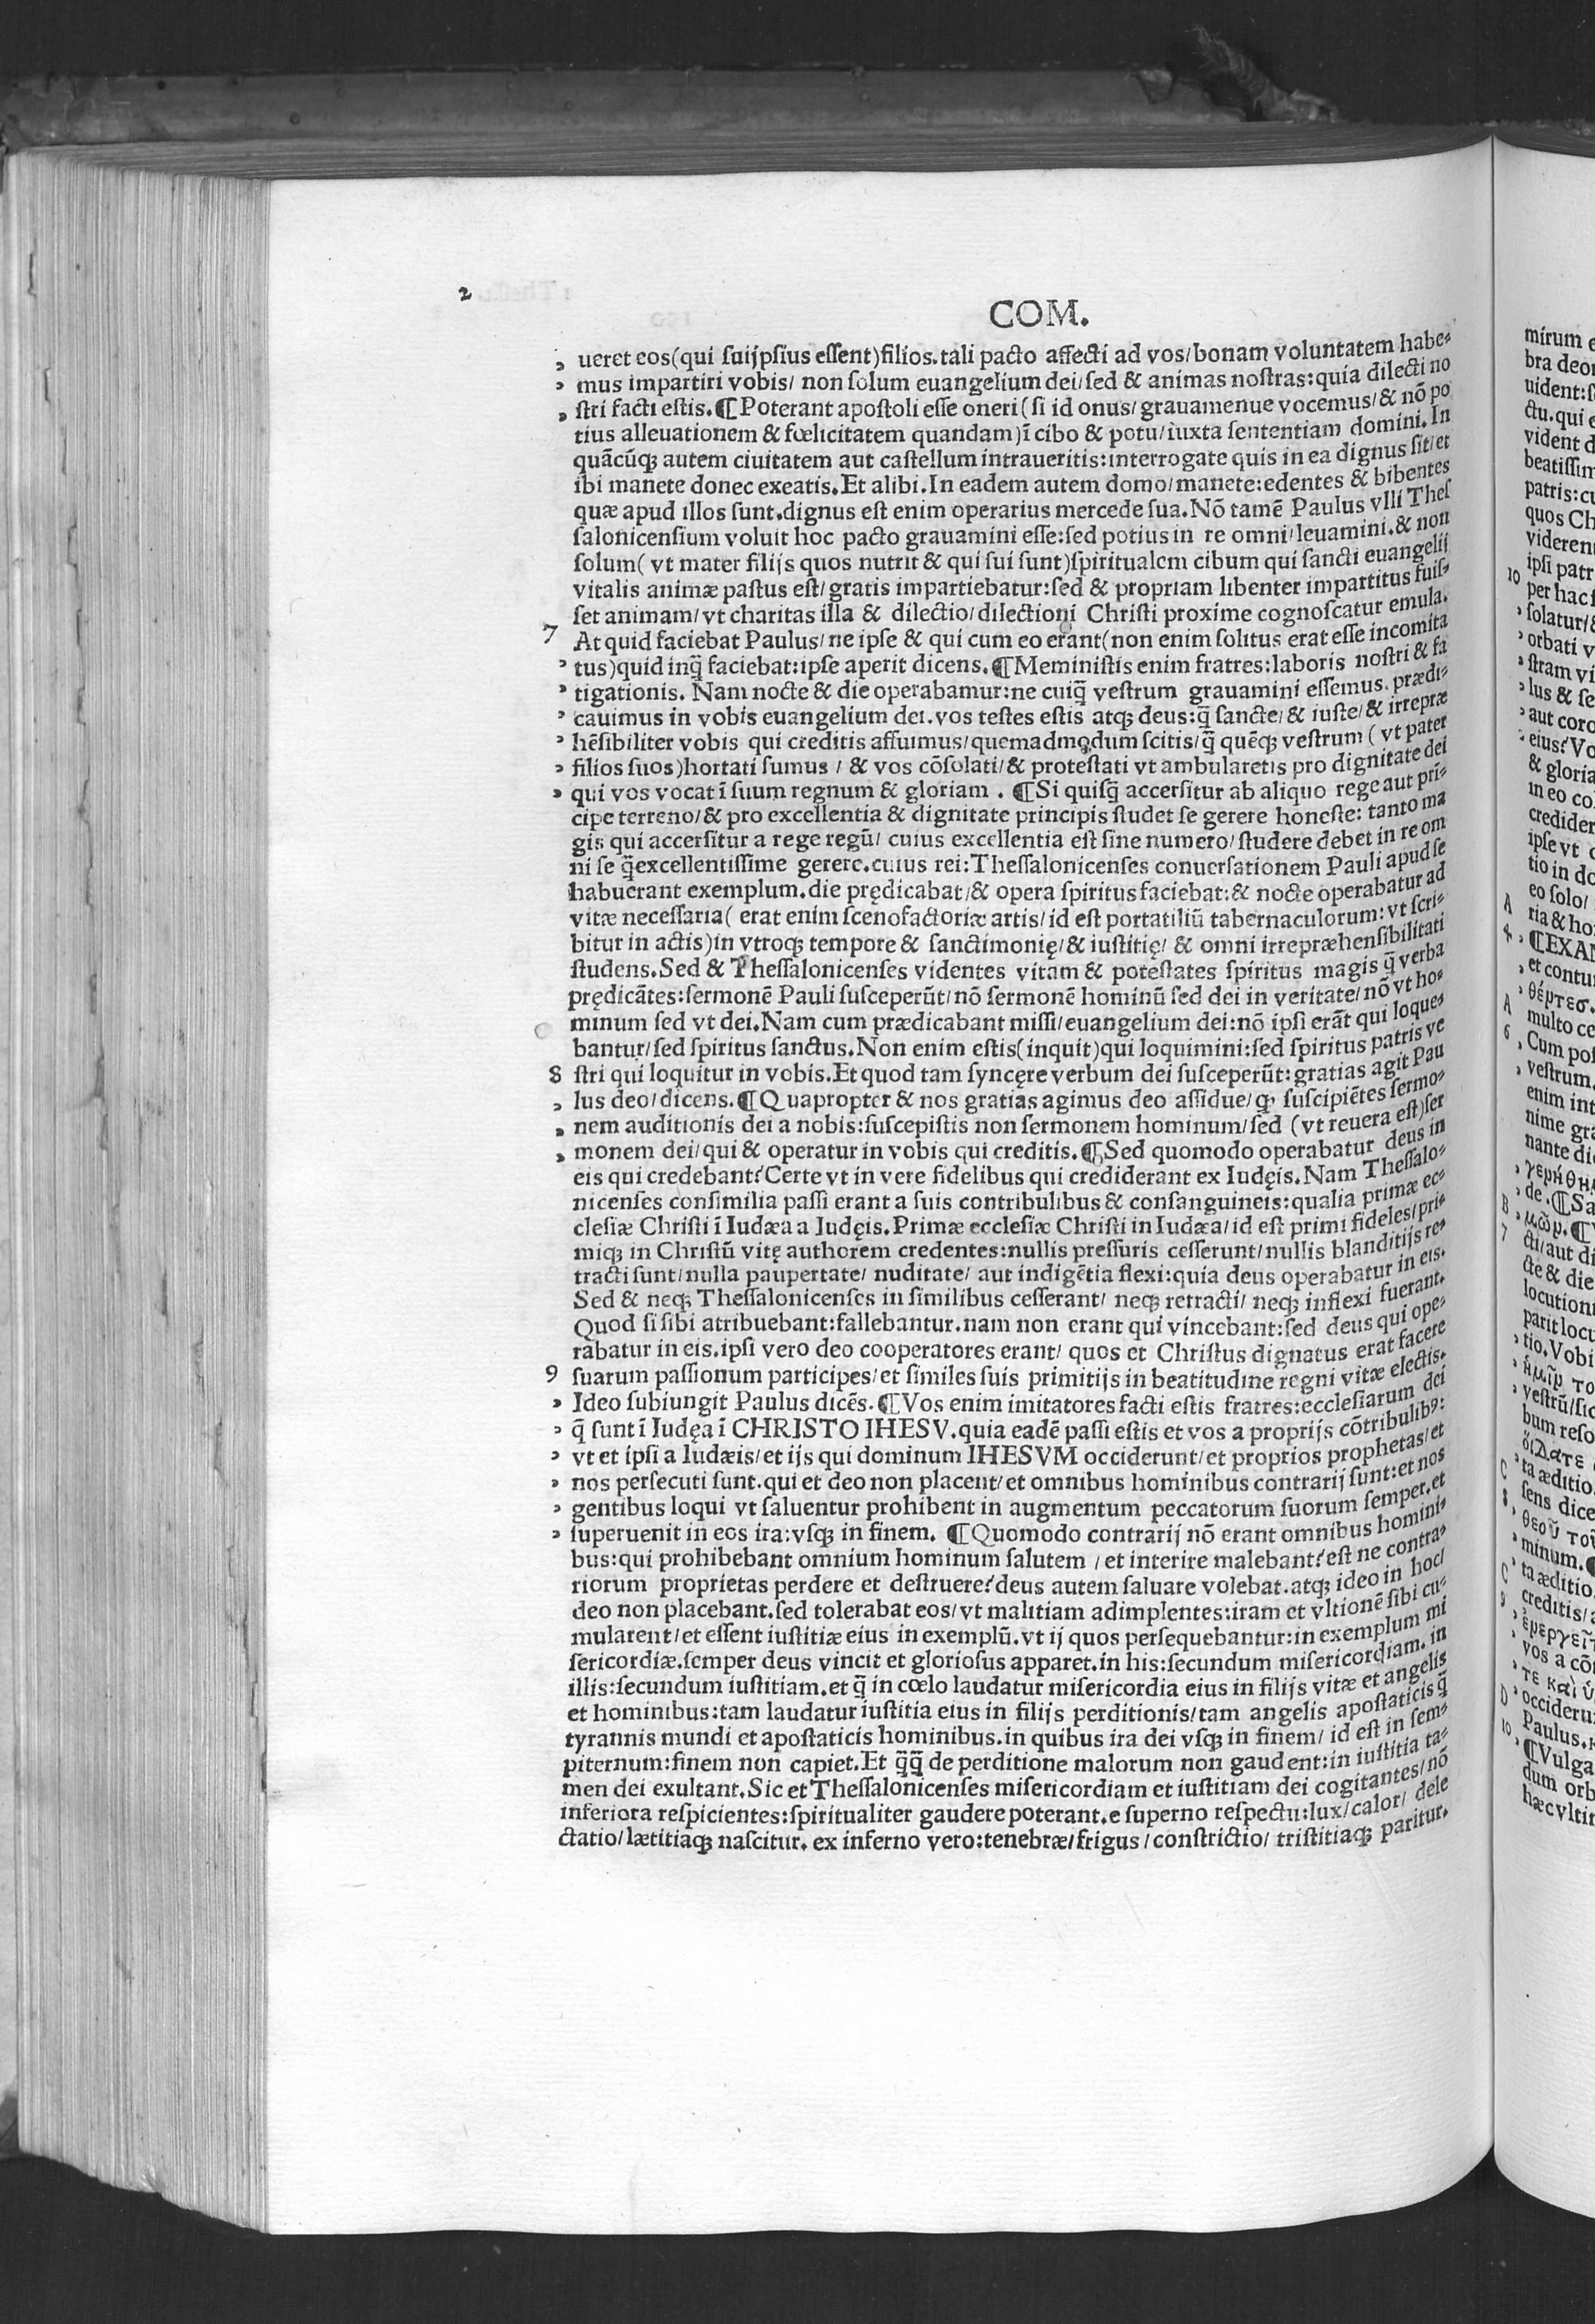 2
COM.
ueret eos(qui suijpsius essent)filios.tali pacto affecti ad vos/bonam voluntatem habe-
mus impartiri vobis/ non solum euangelium dei/sed & animas nostras:quia dilecti no
stri facti estis.¶Poterant apostoli esse oneri(si id onus/grauamenue vocemus/& nõ po
tius alleuationem & fœlicitatem quandam)ĩ cibo & potu/iuxta sententiam domini.In
quãcũq; autem ciuitatem aut castellum intraueritis:interrogate quis in ea dignus sit/et
ibi manete donec exeatis.Et alibi.In eadem autem domo/manete:edentes & bibentes
quæ apud illos sunt.dignus est enim operarius mercede sua.Nõ tamẽ Paulus vlli Thes
salonicensium voluit hoc pacto grauamini esse:sed potius in re omni/leuamini.& non
solum(vt mater filijs quos nutrit & qui sui sunt)spiritualem cibum qui sancti euangelij
vitalis animæ pastus est/gratis impartiebatur:sed & propriam libenter impartitus fuis-
set animam/vt charitas illa & dilectio/dilectioni Christi proxime cognoscatur emula.
7 At quid faciebat Paulus/ne ipse & qui cum eo erant(non enim solitus erat esse incomita
tus)quid inq̃ faciebat:ipse aperit dicens.¶Meministis enim fratres:laboris nostri & fa
tigationis. Nam nocte & die operabamur:ne cuiq̃ vestrum grauamini essemus.prædi-
cauimus in vobis euangelium dei.vos testes estis atq; deus:q̃ sancte/& iuste/& irrepræ
hẽsibiliter vobis qui creditis affuimus/quemadmodum scitis/q̃ quẽq; vestrum(vt pater
filios suos)hortati sumus / & vos cõsolati/& protestati vt ambularetis pro dignitate dei
qui vos vocat ĩ suum regnum & gloriam . ¶Si quisq̃ accersitur ab aliquo rege aut pri-
cipe terreno/& pro excellentia & dignitate principis studet se gerere honeste: tanto ma
gis qui accersitur a rege regũ/ cuius excellentia est sine numero/studere debet in re om
ni se q̃excellentissime gerere.cuius rei:Thessalonicenses conuersationem Pauli apud se
habuerant exemplum.die prędicabat/& opera spiritus faciebat:& nocte operabatur ad
vitæ necessaria( erat enim scenofactoriæ artis/id est portatiliũ tabernaculorum:vt scri-
bitur in actis)in vtroq; tempore & sanctimonię/& iustitię/ & omni irrepræhensibilitati
studens.Sed & Thessalonicenses videntes vitam & potestates spiritus magis q̃ verba
prędicãtes:sermonẽ Pauli susceperũt/nõ sermonẽ hominũ sed dei in veritate/nõ vt ho-
minum sed vt dei.Nam cum prædicabant missi/euangelium dei:nõ ipsi erãt qui loque-
bantur/sed spiritus sanctus.Non enim estis(inquit)qui loquimini:sed spiritus patris ve
8 stri qui loquitur in vobis.Et quod tam syncęre verbum dei susceperũt:gratias agit Pau
lus deo/dicens.¶Quapropter & nos gratias agimus deo assidue/q, suscipiẽtes sermo-
nem auditionis dei a nobis:suscepistis non sermonem hominum/sed (vt reuera est)ser
monem dei/qui & operatur in vobis qui creditis.¶Sed quomodo operabatur deus in
eis qui credebant?Certe vt in vere fidelibus qui crediderant ex Iudęis.Nam Thessalo-
nicenses consimilia passi erant a suis contribulibus & consanguineis:qualia primæ ec-
clesiæ Christi ĩ Iudæa a Judęis.Primæ ecclesiæ Christi in Iudæa/id est primi fideles/pri-
miq; in Christũ vitę authorem credentes:nullis pressuris cesserunt/nullis blanditijs re-
tracti sunt/nulla paupertate/ nuditate/ aut indigẽtia flexi:quia deus operabatur in eis.
Sed & neq; Thessalonicenses in similibus cesserant/ neq; retracti/ neq; inflexi fuerant.
Quod si sibi atribuebant:fallebantur.nam non erant qui vincebant:sed deus qui ope-
rabatur in eis.ipsi vero deo cooperatores erant/ quos et Christus dignatus erat facere
9 suarum passionum participes/et similes suis primitijs in beatitudine regni vitæ electis.
Ideo subiungit Paulus dicẽs.¶Vos enim imitatores facti estis fratres:ecclesiarum dei
q̃ sunt ĩ Iudęa ĩ CHRISTO IHESV.quia eadẽ passi estis et vos a proprijs cõtribulib⁹:
vt et ipsi a Iudæis/et ijs qui dominum IHESVM occiderunt/et proprios prophetas/et
nos persecuti sunt.qui et deo non placent/et omnibus hominibus contrarij sunt:et nos
gentibus loqui vt saluentur prohibent in augmentum peccatorum suorum semper.et
superuenit in eos ira:vsq; in finem. ¶Quomodo contrarij nõ erant omnibus homini-
bus:qui prohibebant omnium hominum salutem /et interire malebant?est ne contra-
riorum proprietas perdere et destruere?deus autem saluare volebat.atq; ideo in hoc/
deo non placebant.sed tolerabat eos/vt malitiam adimplentes:iram et vltionẽ sibi cu-
mularent/et essent iustitiæ eius in exemplũ.vt ij quos persequebantur:in exemplum mi
sericordiæ.semper deus vincit et gloriosus apparet.in his:secundum misericordiam.in
illis:secundum iustitiam.et q̃ in cœlo laudatur misericordia eius in filijs vitæ et angelis
et hominibus:tam laudatur iustitia eius in filijs perditionis/tam angelis apostaticis q̃
tyrannis mundi et apostaticis hominibus.in quibus ira dei vsq; in finem/ id est in sem-
piternum:finem non capiet.Et q̃q̃ de perditione malorum non gaudent:in iustitia ta-
men dei exultant.Sic et Thessalonicenses misericordiam et iustitiam dei cogitantes/nõ
inferiora respicientes:spiritualiter gaudere poterant.e superno respectu:lux/calor/ dele
ctatio/lætitiaq; nascitur. ex inferno vero:tenebræ/frigus/constrictio/ tristitiaq; paritur.